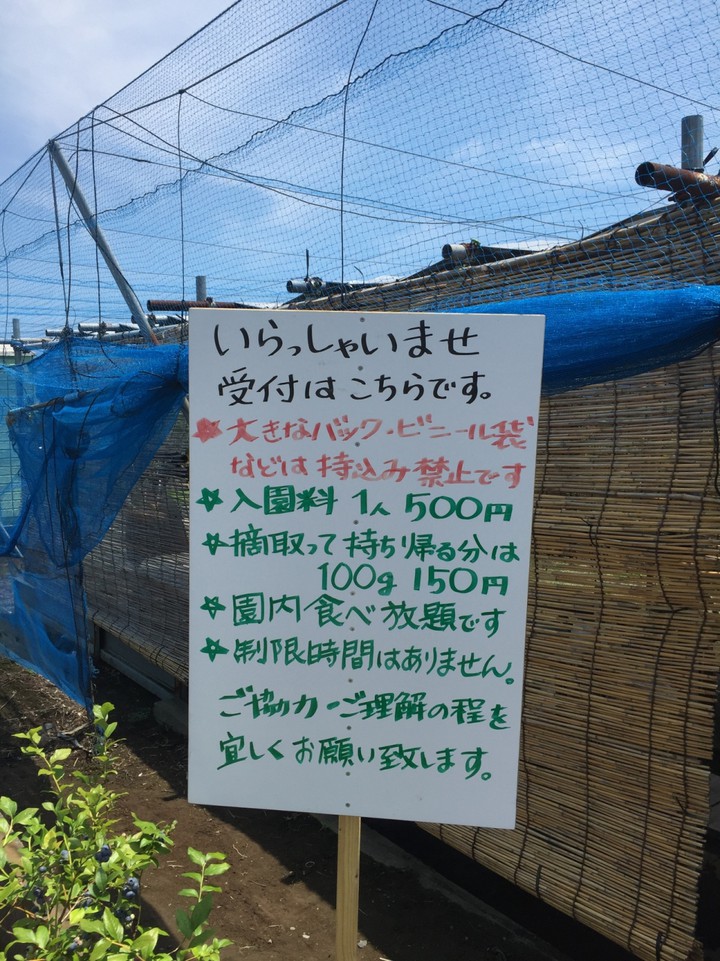 いらっしゃいませ
受付はこちらです。
☆大きなバック・ビニール袋
などは持込み禁止です
☆入園料 1人 500円
☆摘取って持ち帰る分は
100g 150円
☆園内食べ放題です
☆制限時間はありません。
ご協力・ご理解の程を
宜しくお願い致します。